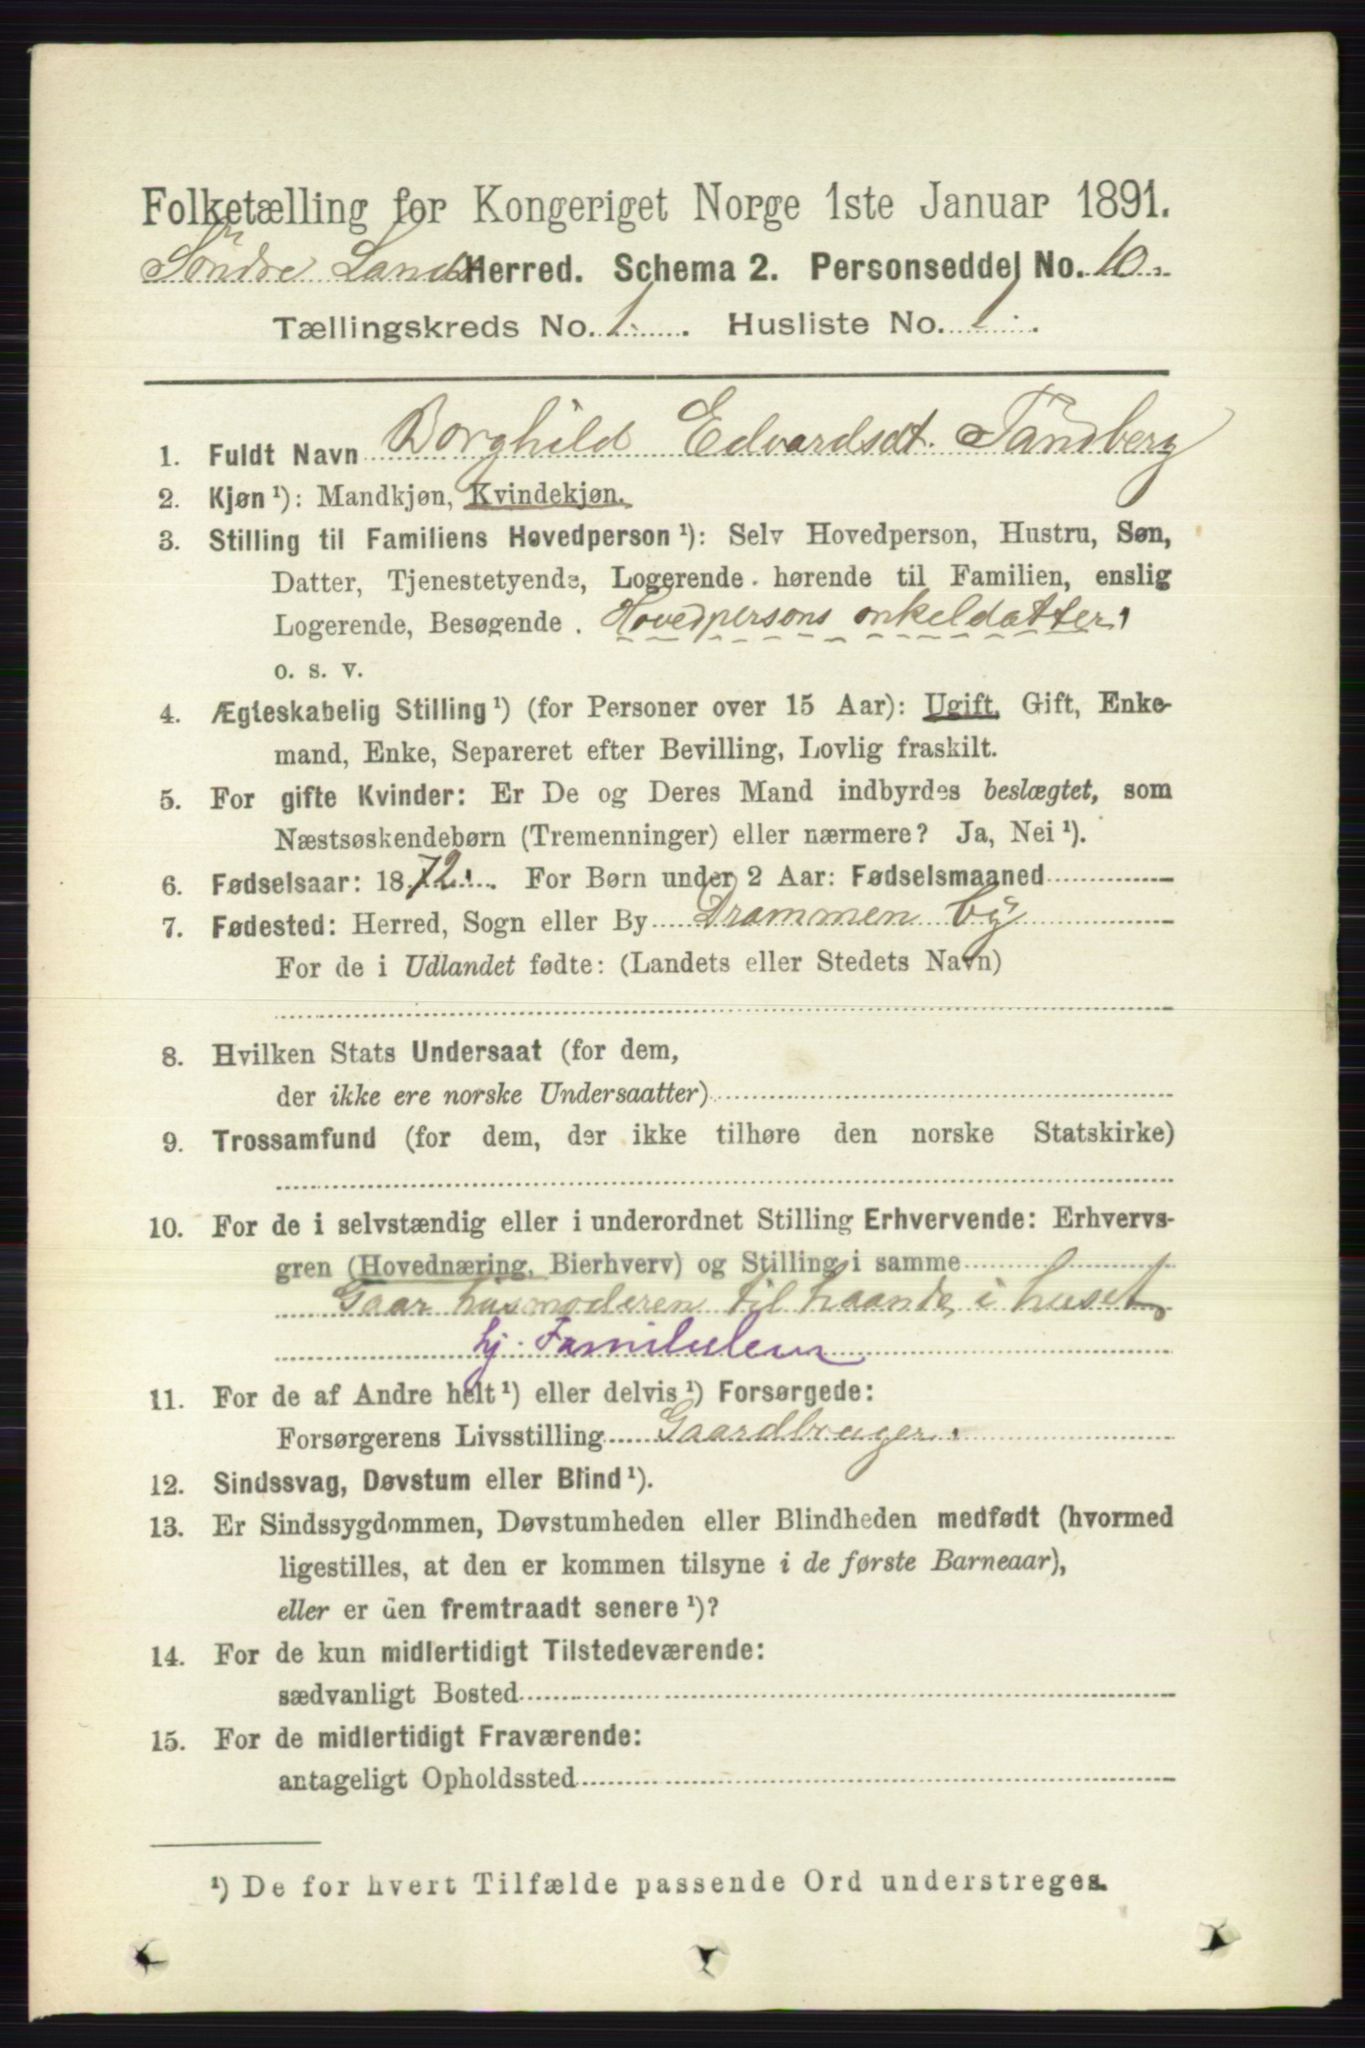 Folketælling for Kongeriget Norge 1ste Januar 1891.
Søndre Lands Herred. Schema 2. Personseddel No. 10.
Tællingskreds No. 1. Husliste No. 1.
1. Fuldt Navn Borghild Edvardsdt. Tandberg
2. Kjøn¹): Mandkjøn, Kvindekjøn.
3. Stilling til Familiens Hovedperson¹): Selv Hovedperson, Hustru, Søn,
Datter, Tjenestetyende, Logerende hørende til Familien, enslig
Logerende, Besøgende. Hovedpersons onkeldatter,
o. s. v.
4. Ægteskabelig Stilling¹) (for Personer over 15 Aar): Ugift, Gift, Enke-
mand, Enke, Separeret efter Bevilling, Lovlig fraskilt.
5. For gifte Kvinder: Er De og Deres Mand indbyrdes beslægtet, som
Næstsøskendebørn (Tremenninger) eller nærmere? Ja, Nei¹).
6. Fødselsaar: 1872. For Børn under 2 Aar: Fødselsmaaned
7. Fødested: Herred, Sogn eller By Drammen by
For de i Udlandet fødte: (Landets eller Stedets Navn)
8. Hvilken Stats Undersaat (for dem,
der ikke ere norske Undersaatter)
9. Trossamfund (for dem, der ikke tilhøre den norske Statskirke)
10. For de i selvstændig eller i underordnet Stilling Erhvervende: Erhvervs-
gren (Hovednæring, Bierhverv) og Stilling i samme
Gaar husmoderen til haande i huset,
hj. Familielem
11. For de af Andre helt¹) eller delvis¹) Forsørgede:
Forsørgerens Livsstilling Gaardbruger.
12. Sindssvag, Døvstum eller Blind¹).
13. Er Sindssygdommen, Døvstumheden eller Blindheden medfødt (hvormed
ligestilles, at den er kommen tilsyne i de første Barneaar),
eller er den fremtraadt senere¹)?
14. For de kun midlertidigt Tilstedeværende:
sædvanligt Bosted
15. For de midlertidigt Fraværende:
antageligt Opholdssted
¹) De for hvert Tilfælde passende Ord understreges.